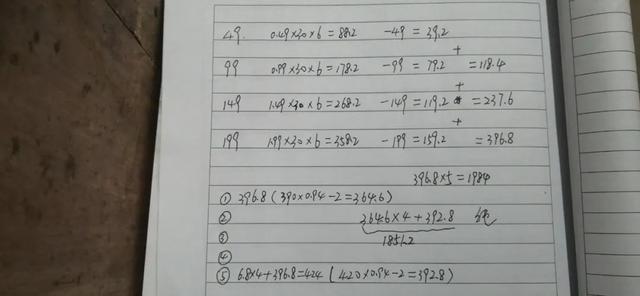 49 0.49×30×6=88.2 -49=39.2
+
99 0.99×30×6=178.2 -99=79.2 =118.4
+
149 1.49×30×6=268.2 -149=119.2 =237.6
+
199 1.99×30×6=358.2 -199=159.2 =396.8
396.8×5=1984
① 396.8 (390×0.94-2=364.6)
② 364.6×4+392.8 纯
③ 1851.2
④
⑤ 6.8×4+396.8=424 (420×0.94-2=392.8)